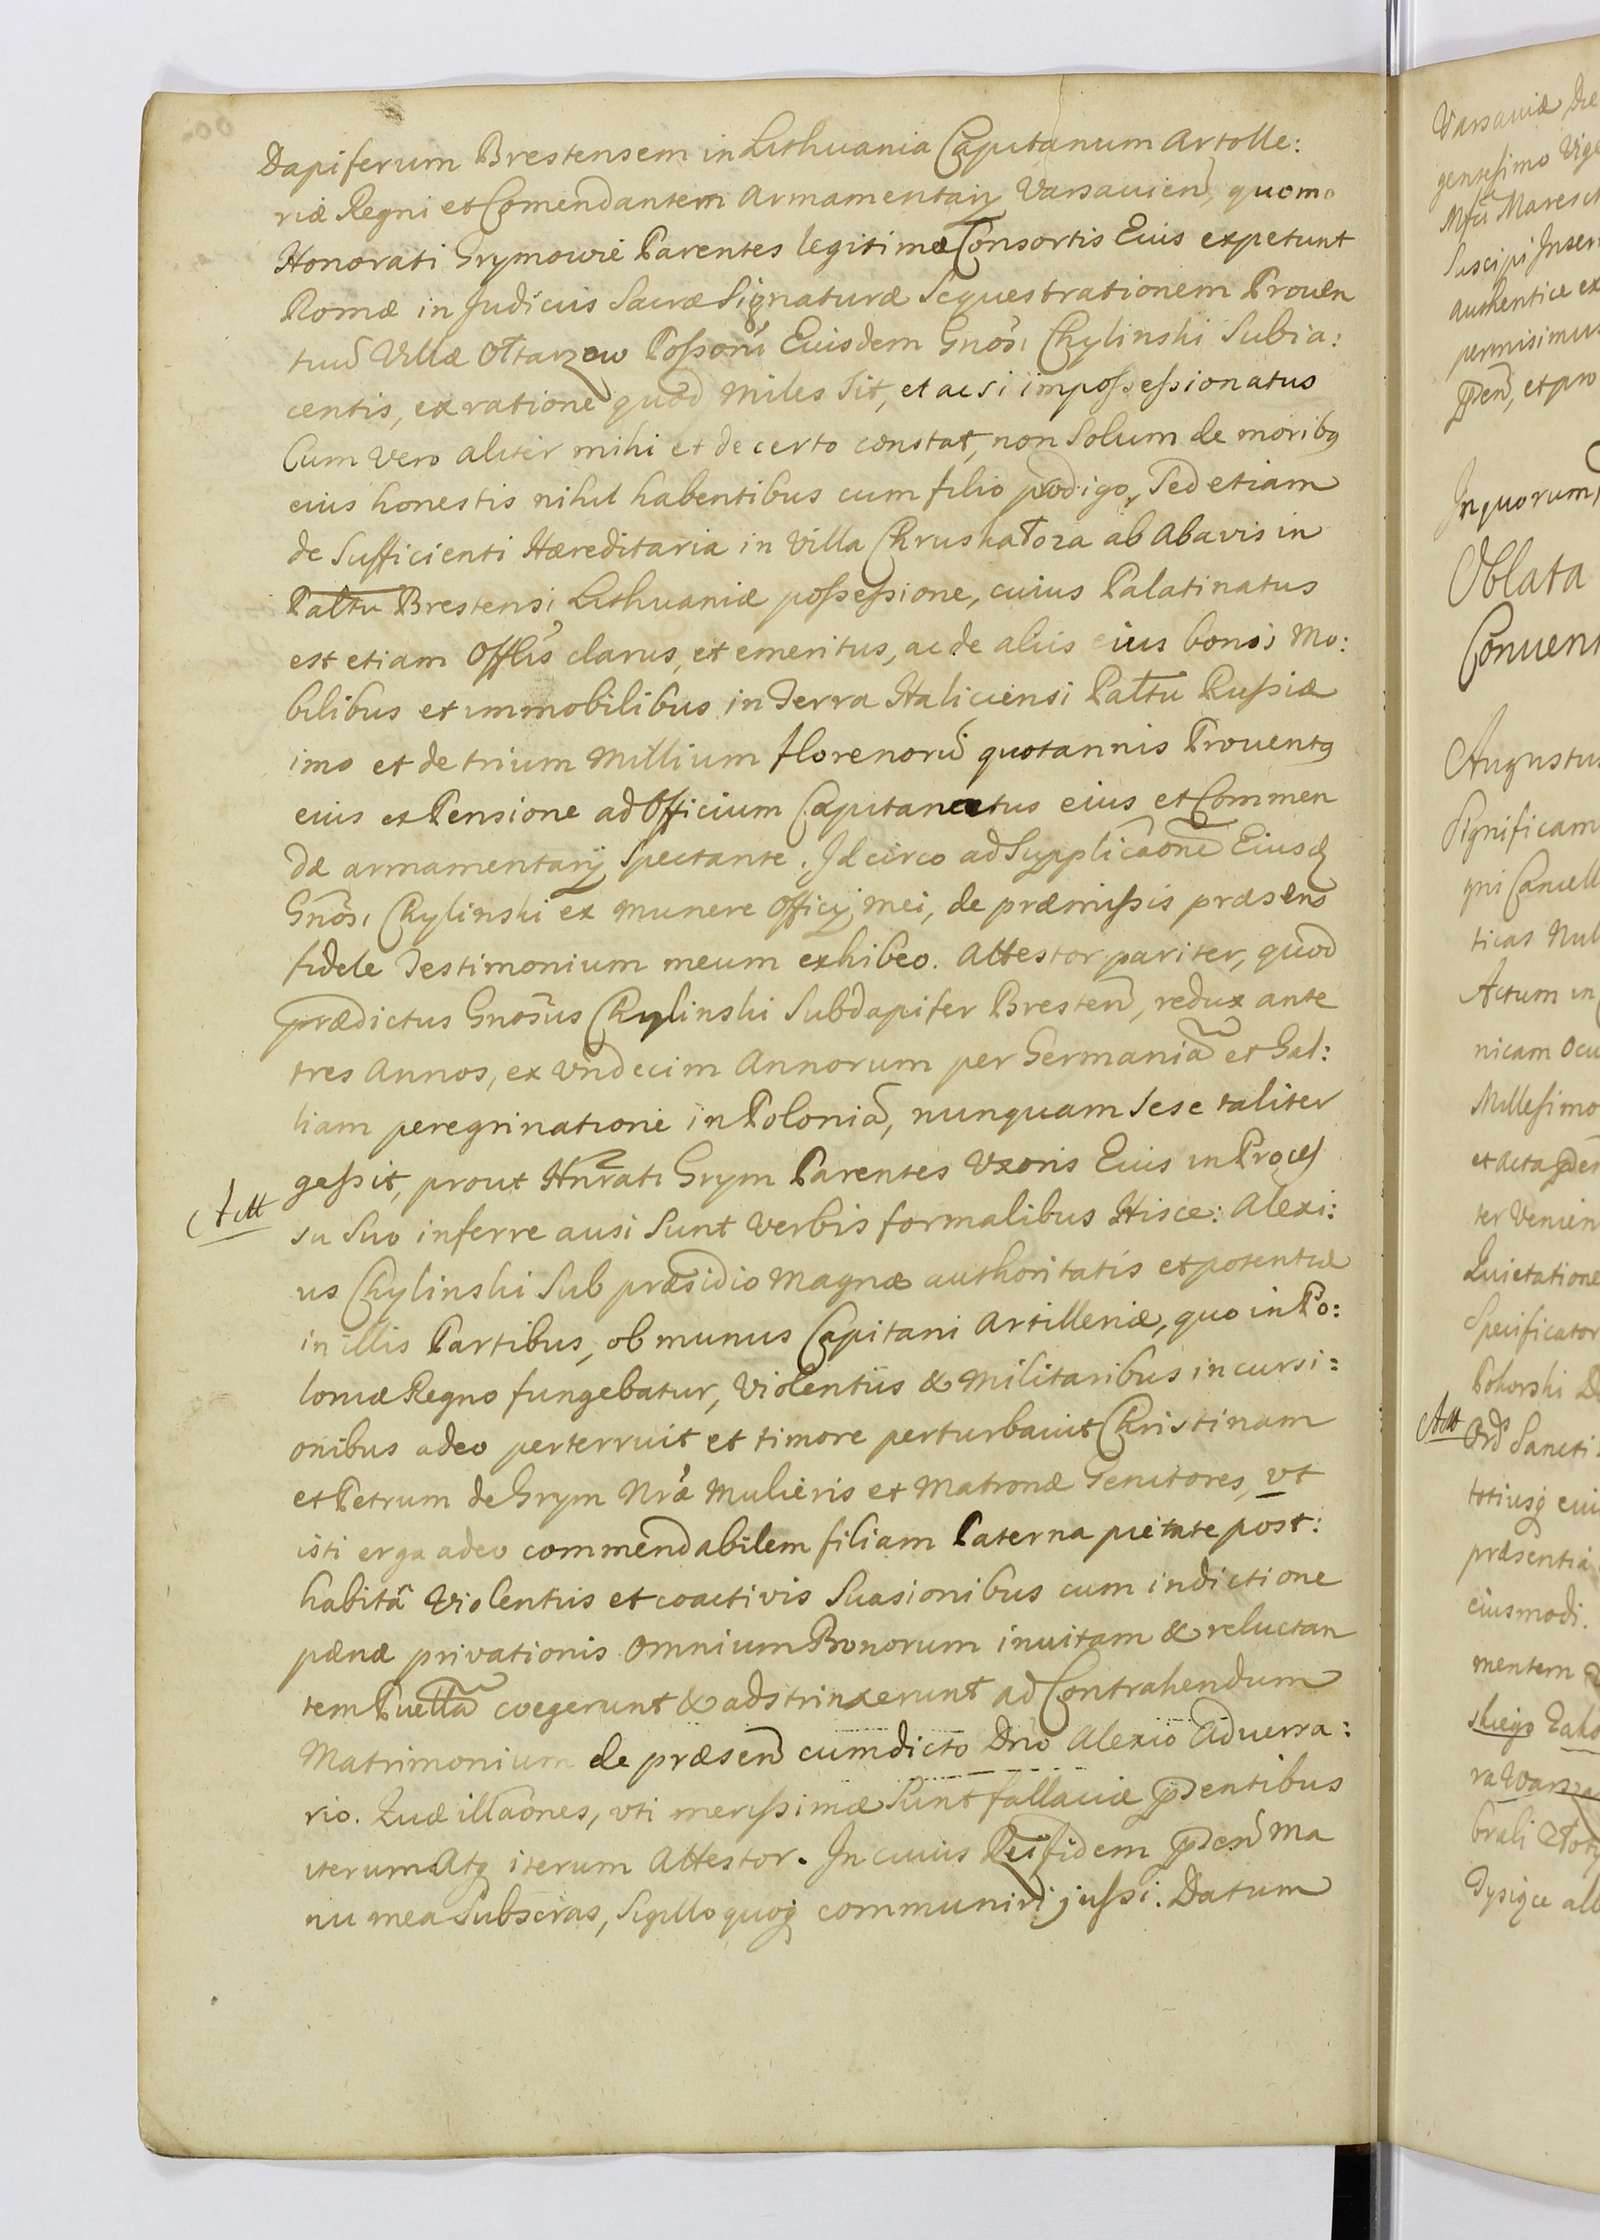 Dapiferum Brestensem in Lithuania Capitanum Artolle:
riæ Regni et Comendantem Armamentarÿ Varsavien̄, quom̄
Honorati Grymowie Parentes legitimæ Consortis Eius expetunt
Romæ in Judiciis Sacræ Signaturæ Sequestrationem Proven
tuū Villæ Ołtarzew Possōni Eiusdem Gnōsi Chylinski Subia:
centis, ex ratione quod Miles Sit, et ac si impossessionatus
Cum vero aliter mihi et de certo constat, non Solum de moribꝫ
eius honestis nihil habentibus cum filio prodigo, Sed etiam
de Sufficienti Hæreditaria in Villa Chruska ab Abavis in
Paltu Brestensi Lithuaniæ possessione, cuius Palatinatus
est etiam Offlis clarus, et emeritus, ac de aliis eius bonis Mo:
bilibus et immobilibus in Terra Haliciensi Paltu Russiæ
imo et de trium Millium florenorū quotannis Proventꝫ
eius et Pensione ad Officium Capitaneatus eius et Commen
dæ armamentarÿ Spectante. Idcirco ad Supplicaōne Eiusd
Gnōsi Chylinski ex munere Officÿ mei, de præmissis præsens
fidele Testimonium meum exhibeo. Attestor pariter, quod
prædictus Gnōsus Chylinski Subdapifer Bresten̄, redux ante
tres Annos, ex Undecim Annorum per Germaniā et Gal:
liam peregrinatione in Poloniā, nunquam Sese taliter
gessit, prout Hnrati Grym Parentes Uxoris Eius in Proces
Att
su Suo inferre ausi Sunt Verbis formalibus Hisce: Alexi:
us Chylinski Sub præsidio Magnæ authoritatis et potentiæ
in illis Partibus, ob munus Capitani Artilleriæ, quo in Po:
loniæ Regno fungebatur, Violentiis & Militaribus incursi:
onibus adeo perterruit et timore perturbavit Christinam
et Petrum de Grym Nrā Mulieris et Matronæ Genitores, vt
isti erga adeo commendabilem filiam Paterna pietate post:
habitâ Violentiis et coactivis Suasionibus cum indictione
pænæ privationis omnium Bonorum invitam & reluctan
tem Puellā coegerunt & adstrinxerunt ad Contrahendum
Matrimonium de præsen̄ cum dicto Dno Alexio Adversa:
rio. Quæ illaōnes, vti merissimæ Sunt fallaciæ p̄sentibus
iterum Atqꝫ iterum Attestor. In cuius Rei fidem p̄sen̄ Ma
nu mea Subscras, Sigillo quoqꝫ communiri jussi. Datum
Varsaviæ Die
gentesimo Vige
Suscipi Inser
authentice ex
permisimus
p̄sen̄, et pro
In quorum
Oblata
Conveni
Augustus
Significam
gni Cancell
ticas Nul
Actum in
nicam Ocu
Millesimo
et Acta p̄sen
ter Venien
Quietatione
Specificator
Pokorski D
Att
Ord Sancti
totiusqꝫ eiu
præsentiā
eiusmodi.
mentem
skiego Zako
ra Warsze
brali
Tysięce all